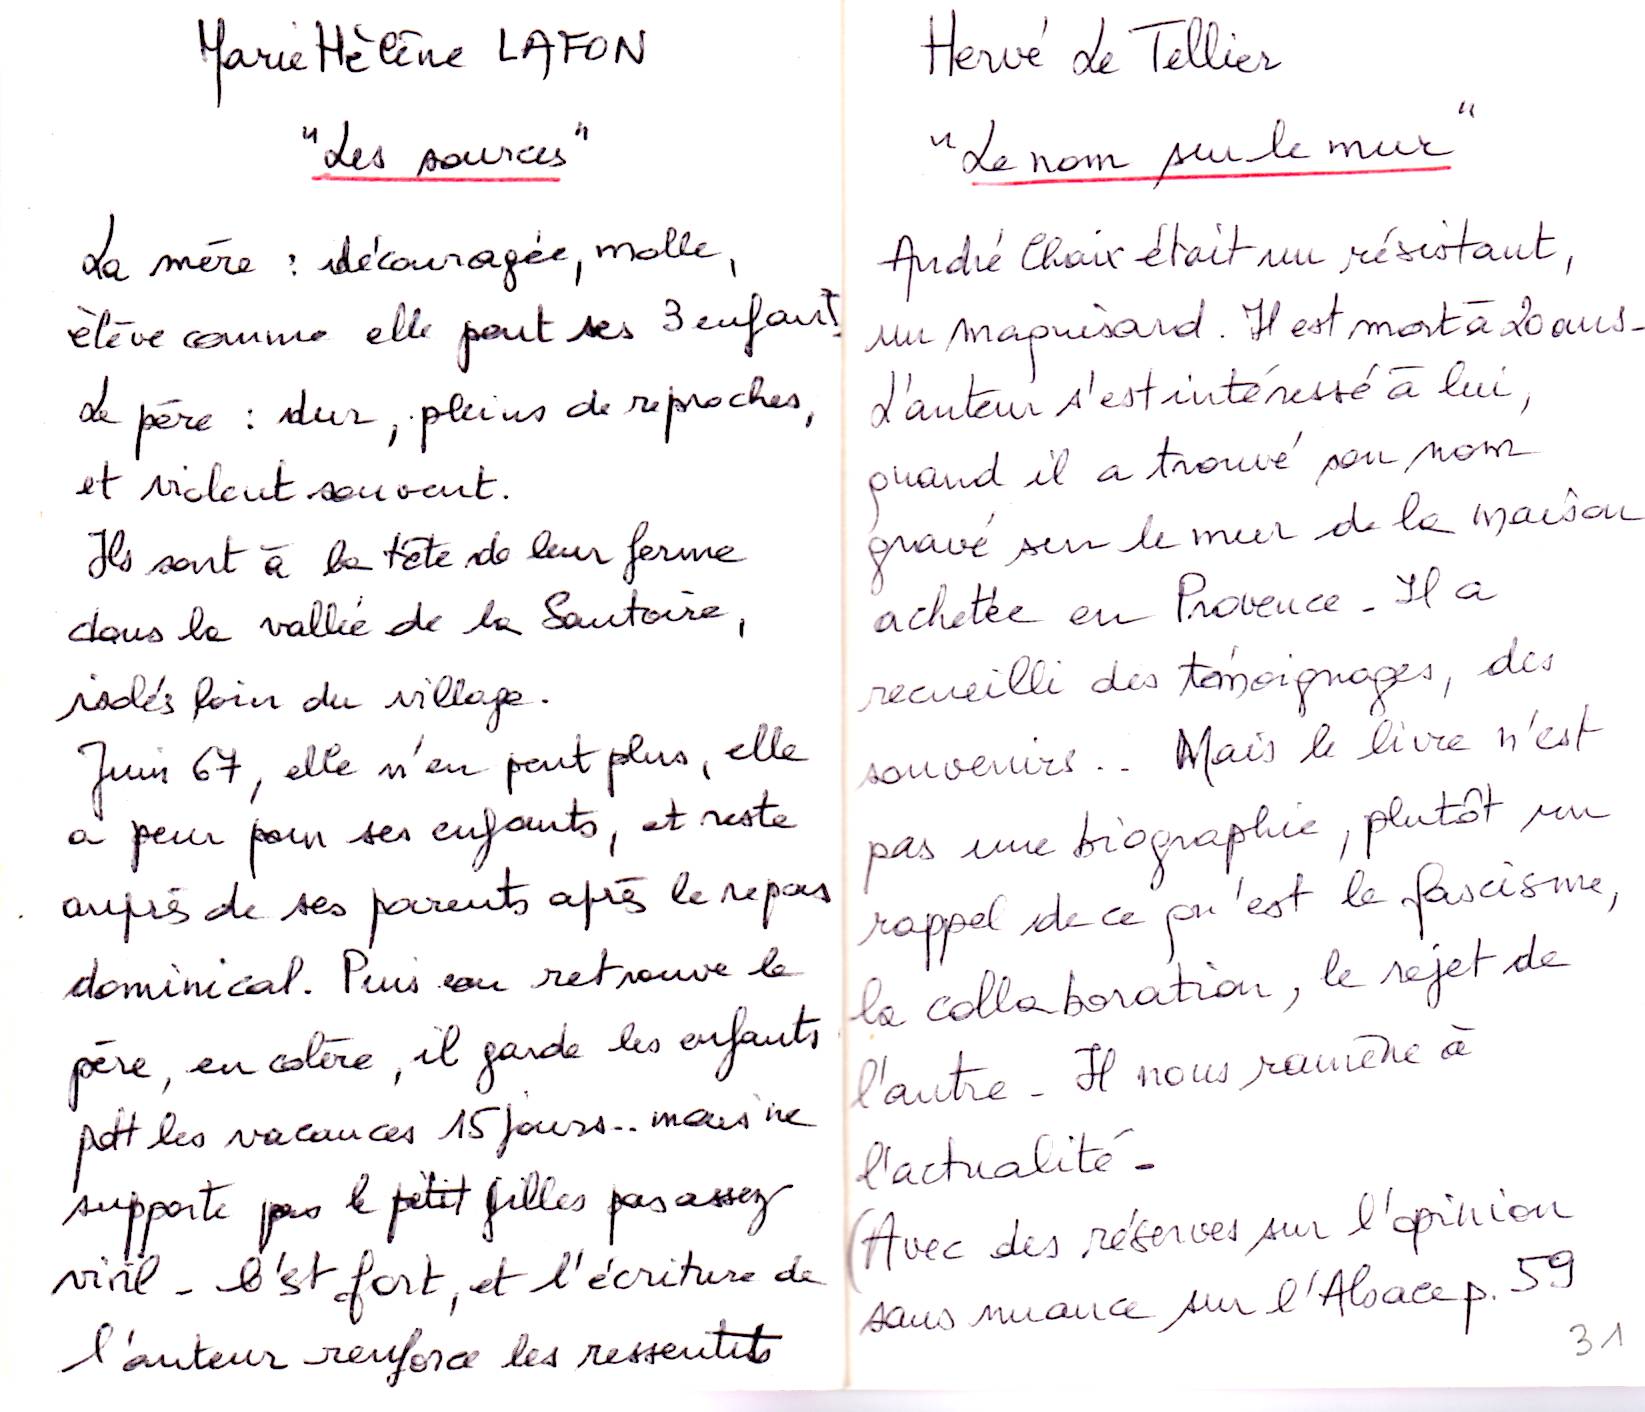 Marie Hélène LAFON
"Les sources"
La mère : découragée, molle,
élève comme elle peut ses 3 enfants.
Le père : dur, pleins de reproches,
et violent souvent.
Ils sont à la tête de leur ferme
dans la vallée de la Santoire,
isolés loin du village.
Juin 67, elle n'en peut plus, elle
a peur pour ses enfants, et reste
auprès de ses parents après le repas
dominical. Puis on retrouve le
père, en colère, il garde les enfants
pdt les vacances 15 jours.. mais ne
supporte pas le petit Gilles pas assez
viril - C'est fort, et l'écriture de
l'auteur renforce les ressentis
Hervé Le Tellier
"Le nom sur le mur"
André Chaix était un résistant,
un maquisard. Il est mort à 20 ans -
L'auteur s'est intéressé à lui,
quand il a trouvé son nom
gravé sur le mur de la maison
achetée en Provence - Il a
recueilli des témoignages, des
souvenirs.. Mais le livre n'est
pas une biographie, plutôt un
rappel de ce qu'est le fascisme,
la collaboration, le rejet de
l'autre - Il nous ramène à
l'actualité -
(Avec des réserves sur l'opinion
sans nuance sur l'Alsace p. 59
31